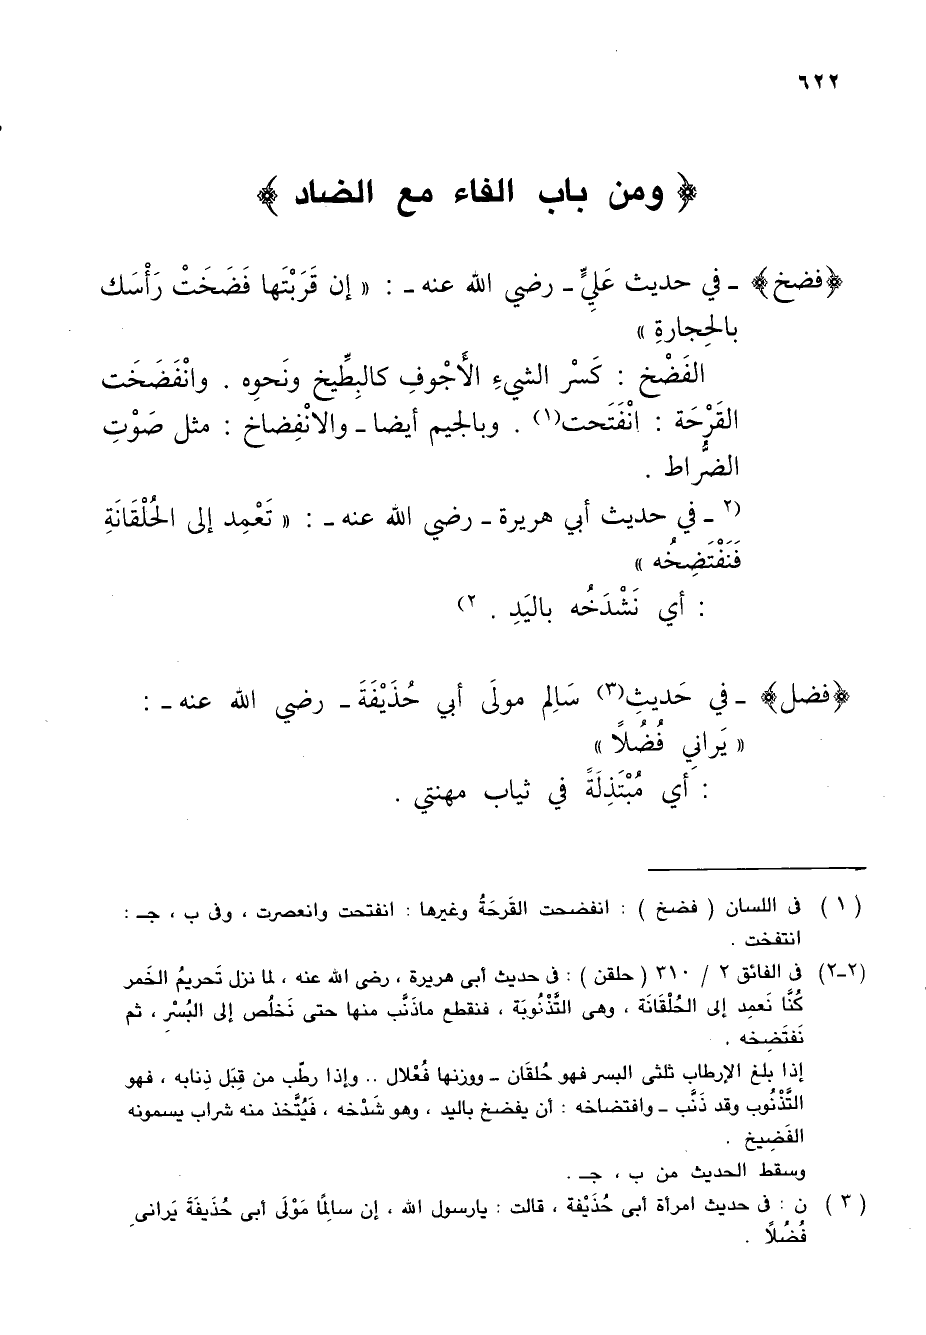 ٦٢٢
﴿ ومن باب الفاء مع الضاد ﴾
﴿فضخ﴾ ـ في حديث عَليٍّ ـ رضي الله عنه ـ : « إن قَرَبْتَها فَضَخَتْ رَأْسَك
بالحِجارةِ »
الفَضْخ : كَسْر الشيءِ الأَجْوفِ كالبِطِّيخ ونَحوِه . وانْفَضَخَت
القَرْحَة : انْفَتَحت(١) . وبالجيم أيضا ـ والانْفِضاخ : مثل صَوْتِ
الضُّراط .
(٢ ـ في حديث أبي هريرة ـ رضي الله عنه ـ : « تَعْمِد إلى الحُلْقَانَةِ
فَنَفْتَضِخُه »
: أي نَشْدَخُه باليَدِ . ٢)
﴿فضل﴾ ـ في حَديثِ(٣) سَالِم مولَى أبي حُذَيْفَةَ ـ رضي الله عنه ـ :
« يَراني فُضُلًا »
: أي مُبْتَذِلَةً في ثياب مهنتي .
(١) فى اللسان ( فضخ ) : انفضخت القَرحَةُ وغيرها : انفتحت وانعصرت ، وفى ب ، جـ :
انتفخت .
(٢-٢) فى الفائق ٢ / ٣١٠ ( حلقن ) : فى حديث أبى هريرة ، رضى الله عنه ، لما نزل تَحريمُ الخَمر
كُنَّا نَعمِد إلى الحُلْقَانَة ، وهى التَّذْنُوبَة ، فنقطع ماذَنَّب منها حتى نَخلُص إلى البُسْر ، ثم
نَفتَضِخه .
إذا بلغ الإرطاب ثلثى البسر فهو حُلقَان ـ ووزنها فُعْلال .. وإذا رطّب من قِبَل ذِنابه ، فهو
التَّذْنُوب وقد ذَنَّب ـ وافتضاخه : أن يفضخ باليد ، وهو شَدْخه ، فَيُتَّخذ منه شراب يسمونه
الفَضِيخ .
وسقط الحديث من ب ، جـ .
(٣) ن : فى حديث امرأة أبى حُذَيْفة ، قالت : يارسول الله ، إن سالِمًا مَوْلَى أبى حُذَيفَةَ يَرانى
فُضُلًا .